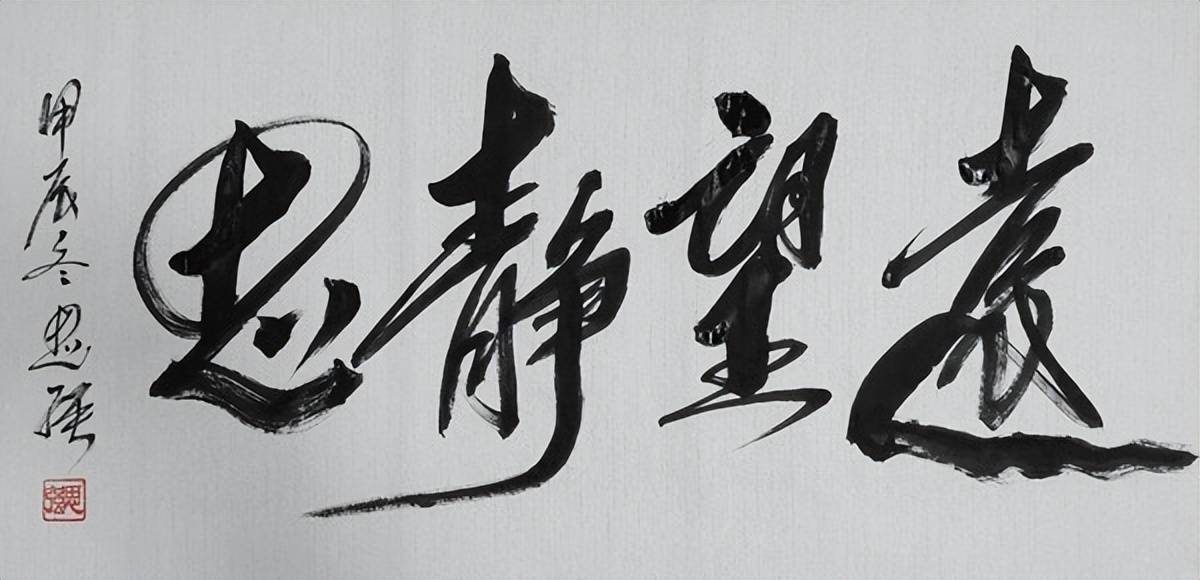 遠望静思
甲辰冬思强